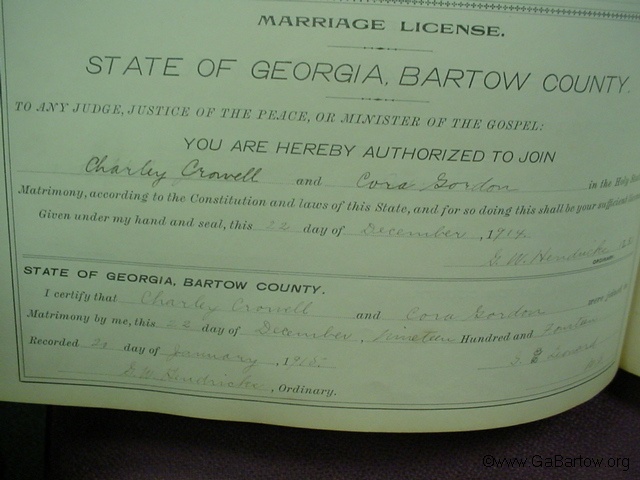 MARRIAGE LICENSE.
STATE OF GEORGIA, BARTOW COUNTY.
TO ANY JUDGE, JUSTICE OF THE PEACE, OR MINISTER OF THE GOSPEL:
YOU ARE HEREBY AUTHORIZED TO JOIN
Charley Crowell and Cora Gordon in the Holy
Matrimony, according to the Constitution and laws of this State, and for so doing this shall be your sufficient
Given under my hand and seal, this 22 day of December, 1914.
G. W. Hendricks
STATE OF GEORGIA, BARTOW COUNTY.
I certify that Charley Crowell and Cora Gordon were
Matrimony by me, this 22 day of December, Nineteen Hundred and
Recorded day of January, 1915.
G. W. Hendricks, Ordinary.
©www.GaBartow.org